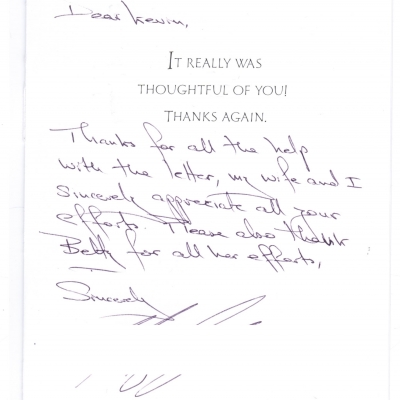 Dear Kevin,
IT REALLY WAS
THOUGHTFUL OF YOU!
THANKS AGAIN.
Thanks for all the help
with the letter, my wife and I
sincerely appreciate all your
efforts. Please also thank
Betty for all her efforts,
Sincerely